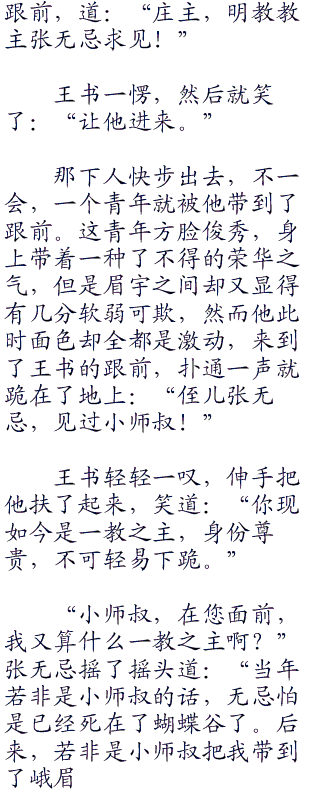 跟前，道：“庄主，明教教
主张无忌求见！”
王书一愣，然后就笑
了：“让他进来。”
那下人快步出去，不一
会，一个青年就被他带到了
跟前。这青年方脸俊秀，身
上带着一种了不得的荣华之
气，但是眉宇之间却又显得
有几分软弱可欺，然而他此
时面色却全都是激动，来到
了王书的跟前，扑通一声就
跪在了地上：“侄儿张无
忌，见过小师叔！”
王书轻轻一叹，伸手把
他扶了起来，笑道：“你现
如今是一教之主，身份尊
贵，不可轻易下跪。”
“小师叔，在您面前，
我又算什么一教之主啊？”
张无忌摇了摇头道：“当年
若非是小师叔的话，无忌怕
是已经死在了蝴蝶谷了。后
来，若非是小师叔把我带到
了峨眉